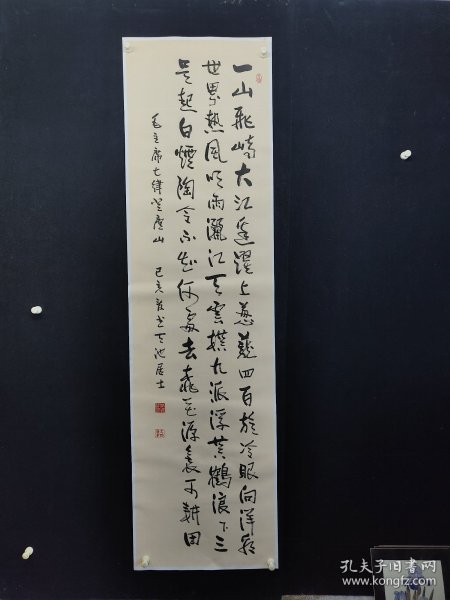 一山飛峙大江邊躍上葱蘢四百旋冷眼向洋看
世界熱風吹雨灑江天雲横九派浮黄鶴浪下三
吴起白煙陶令不知何處去桃花源裏可耕田
毛主席七律登廬山 己亥 书天池居士
孔夫子旧书网
www.kongfz.com